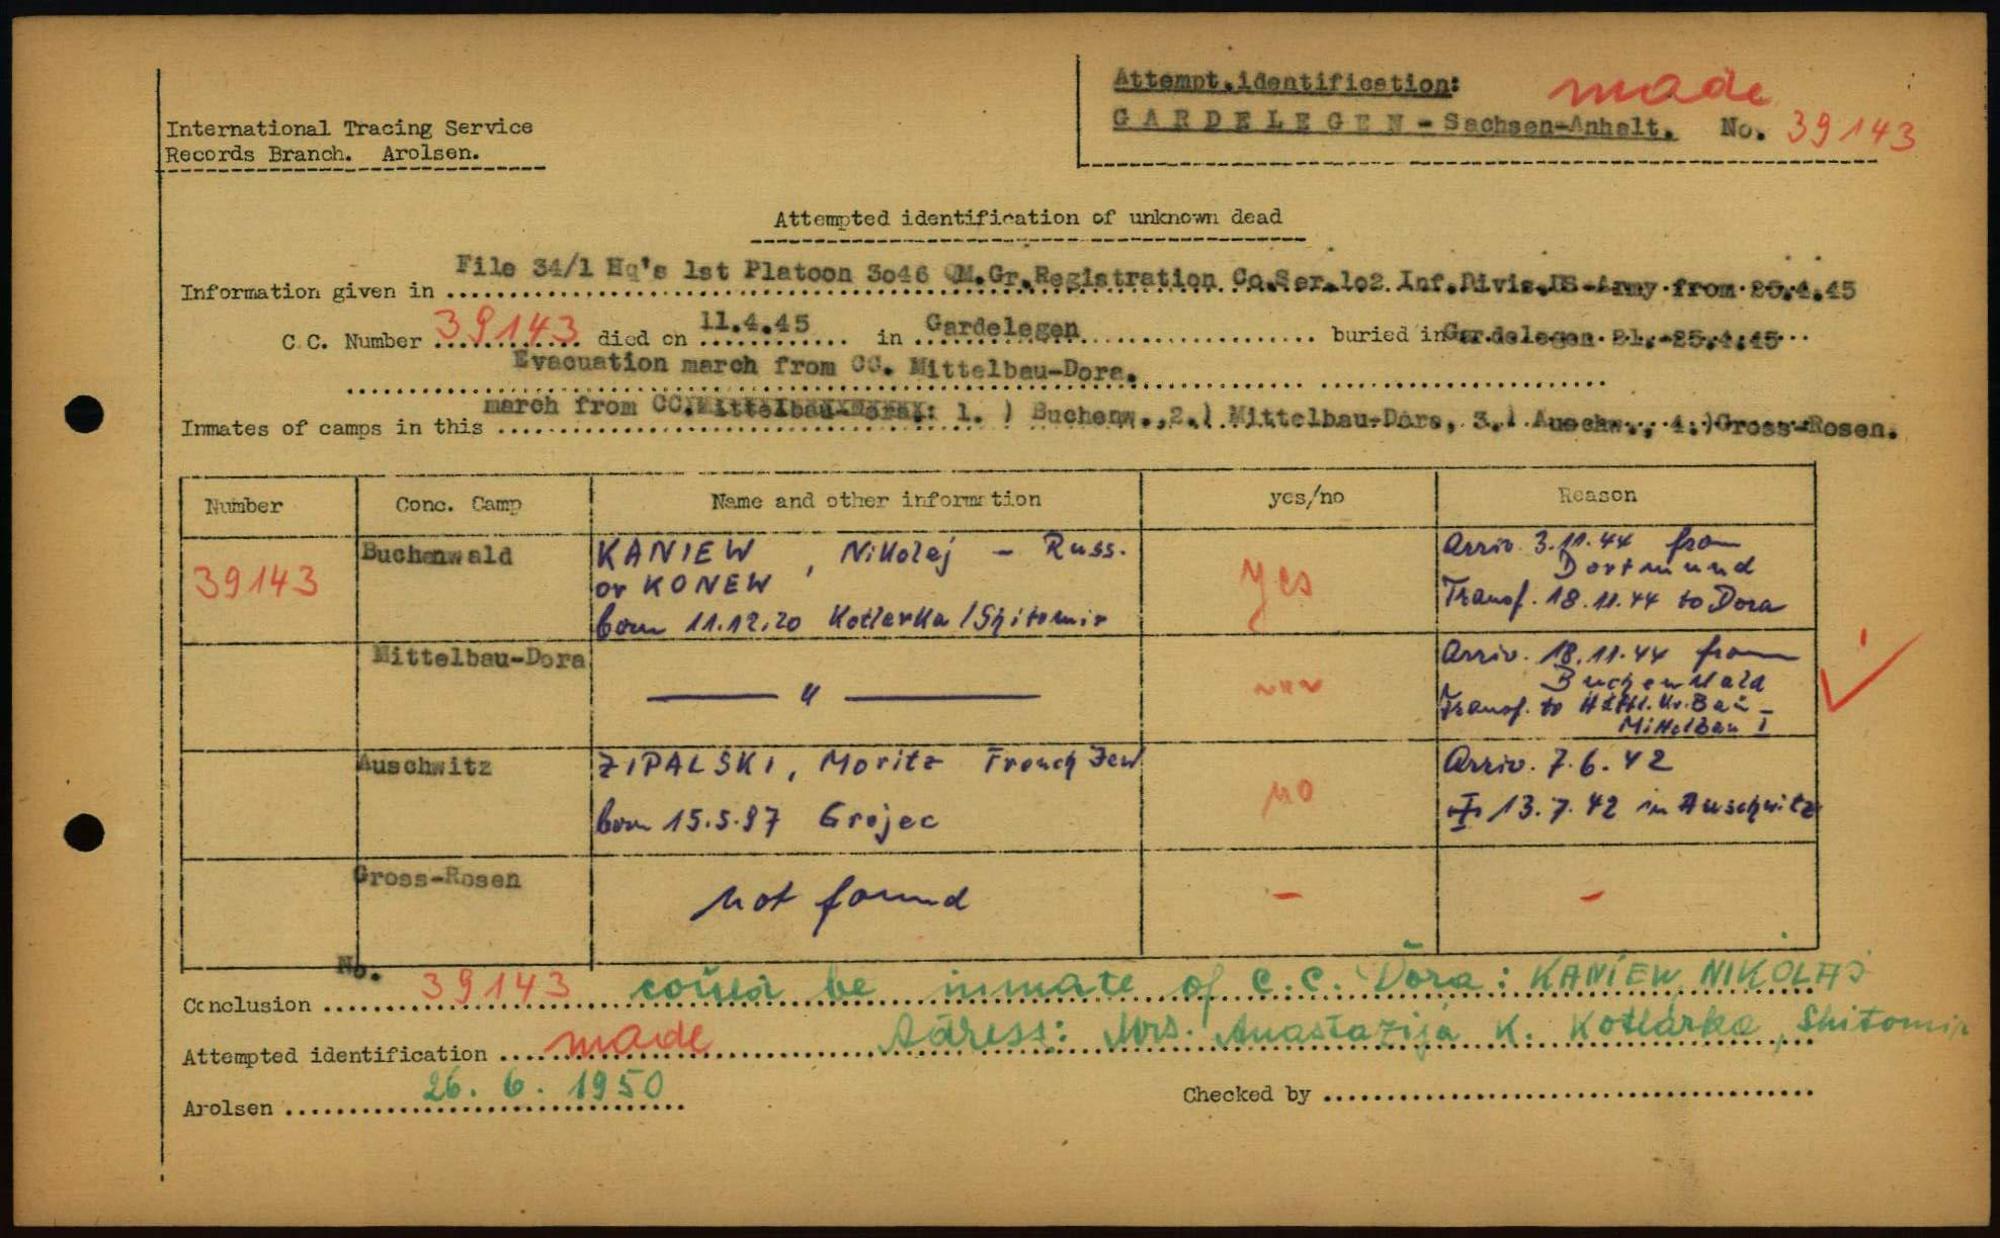 Attempt.identification: made
GARDELEGEN - Sachsen-Anhalt. No. 39143
International Tracing Service
Records Branch. Arolsen.
Attempted identification of unknown dead
Information given in File 34/1 Hq's 1st Platoon 3o46 QM.Gr.Registration Co.Ser.1o2 Inf.Divis.US-Army from 25.4.45
C.C. Number 39143 died on 11.4.45 in Gardelegen buried in Gardelegen 21.-25.4.45
Evacuation march from CC. Mittelbau-Dora.
Inmates of camps in this march from CC.Mittelbau-Dora: 1.) Buchenw.,2.) Mittelbau-Dora, 3.) Auschw., 4.)Gross-Rosen.
Number Conc. Camp Name and other information yes/no Reason
39143 Buchenwald KANIEW, Nikolej - Russ.
or KONEW
born 11.12.20 Kotlarka /Shitomir
yes
Arriv. 3.11.44 from
Dortmund
Transf. 18.11.44 to Dora
Mittelbau-Dora — " —
Arriv. 18.11.44 from
Buchenwald
Transf. to Häftl. Kr. Bau -
Mittelbau I
Auschwitz ZIPALSKI, Moritz French Jew
born 15.5.97 Grojec
no
Arriv. 7.6.42
13.7.42 in Auschwitz
Gross-Rosen not found - -
Conclusion No. 39143 could be inmate of C.C. Dora: KANIEW NIKOLAJ
Attempted identification made Adress: Mrs. Anastazija K. Kotlarka, Shitomir
Arolsen 26. 6. 1950 Checked by